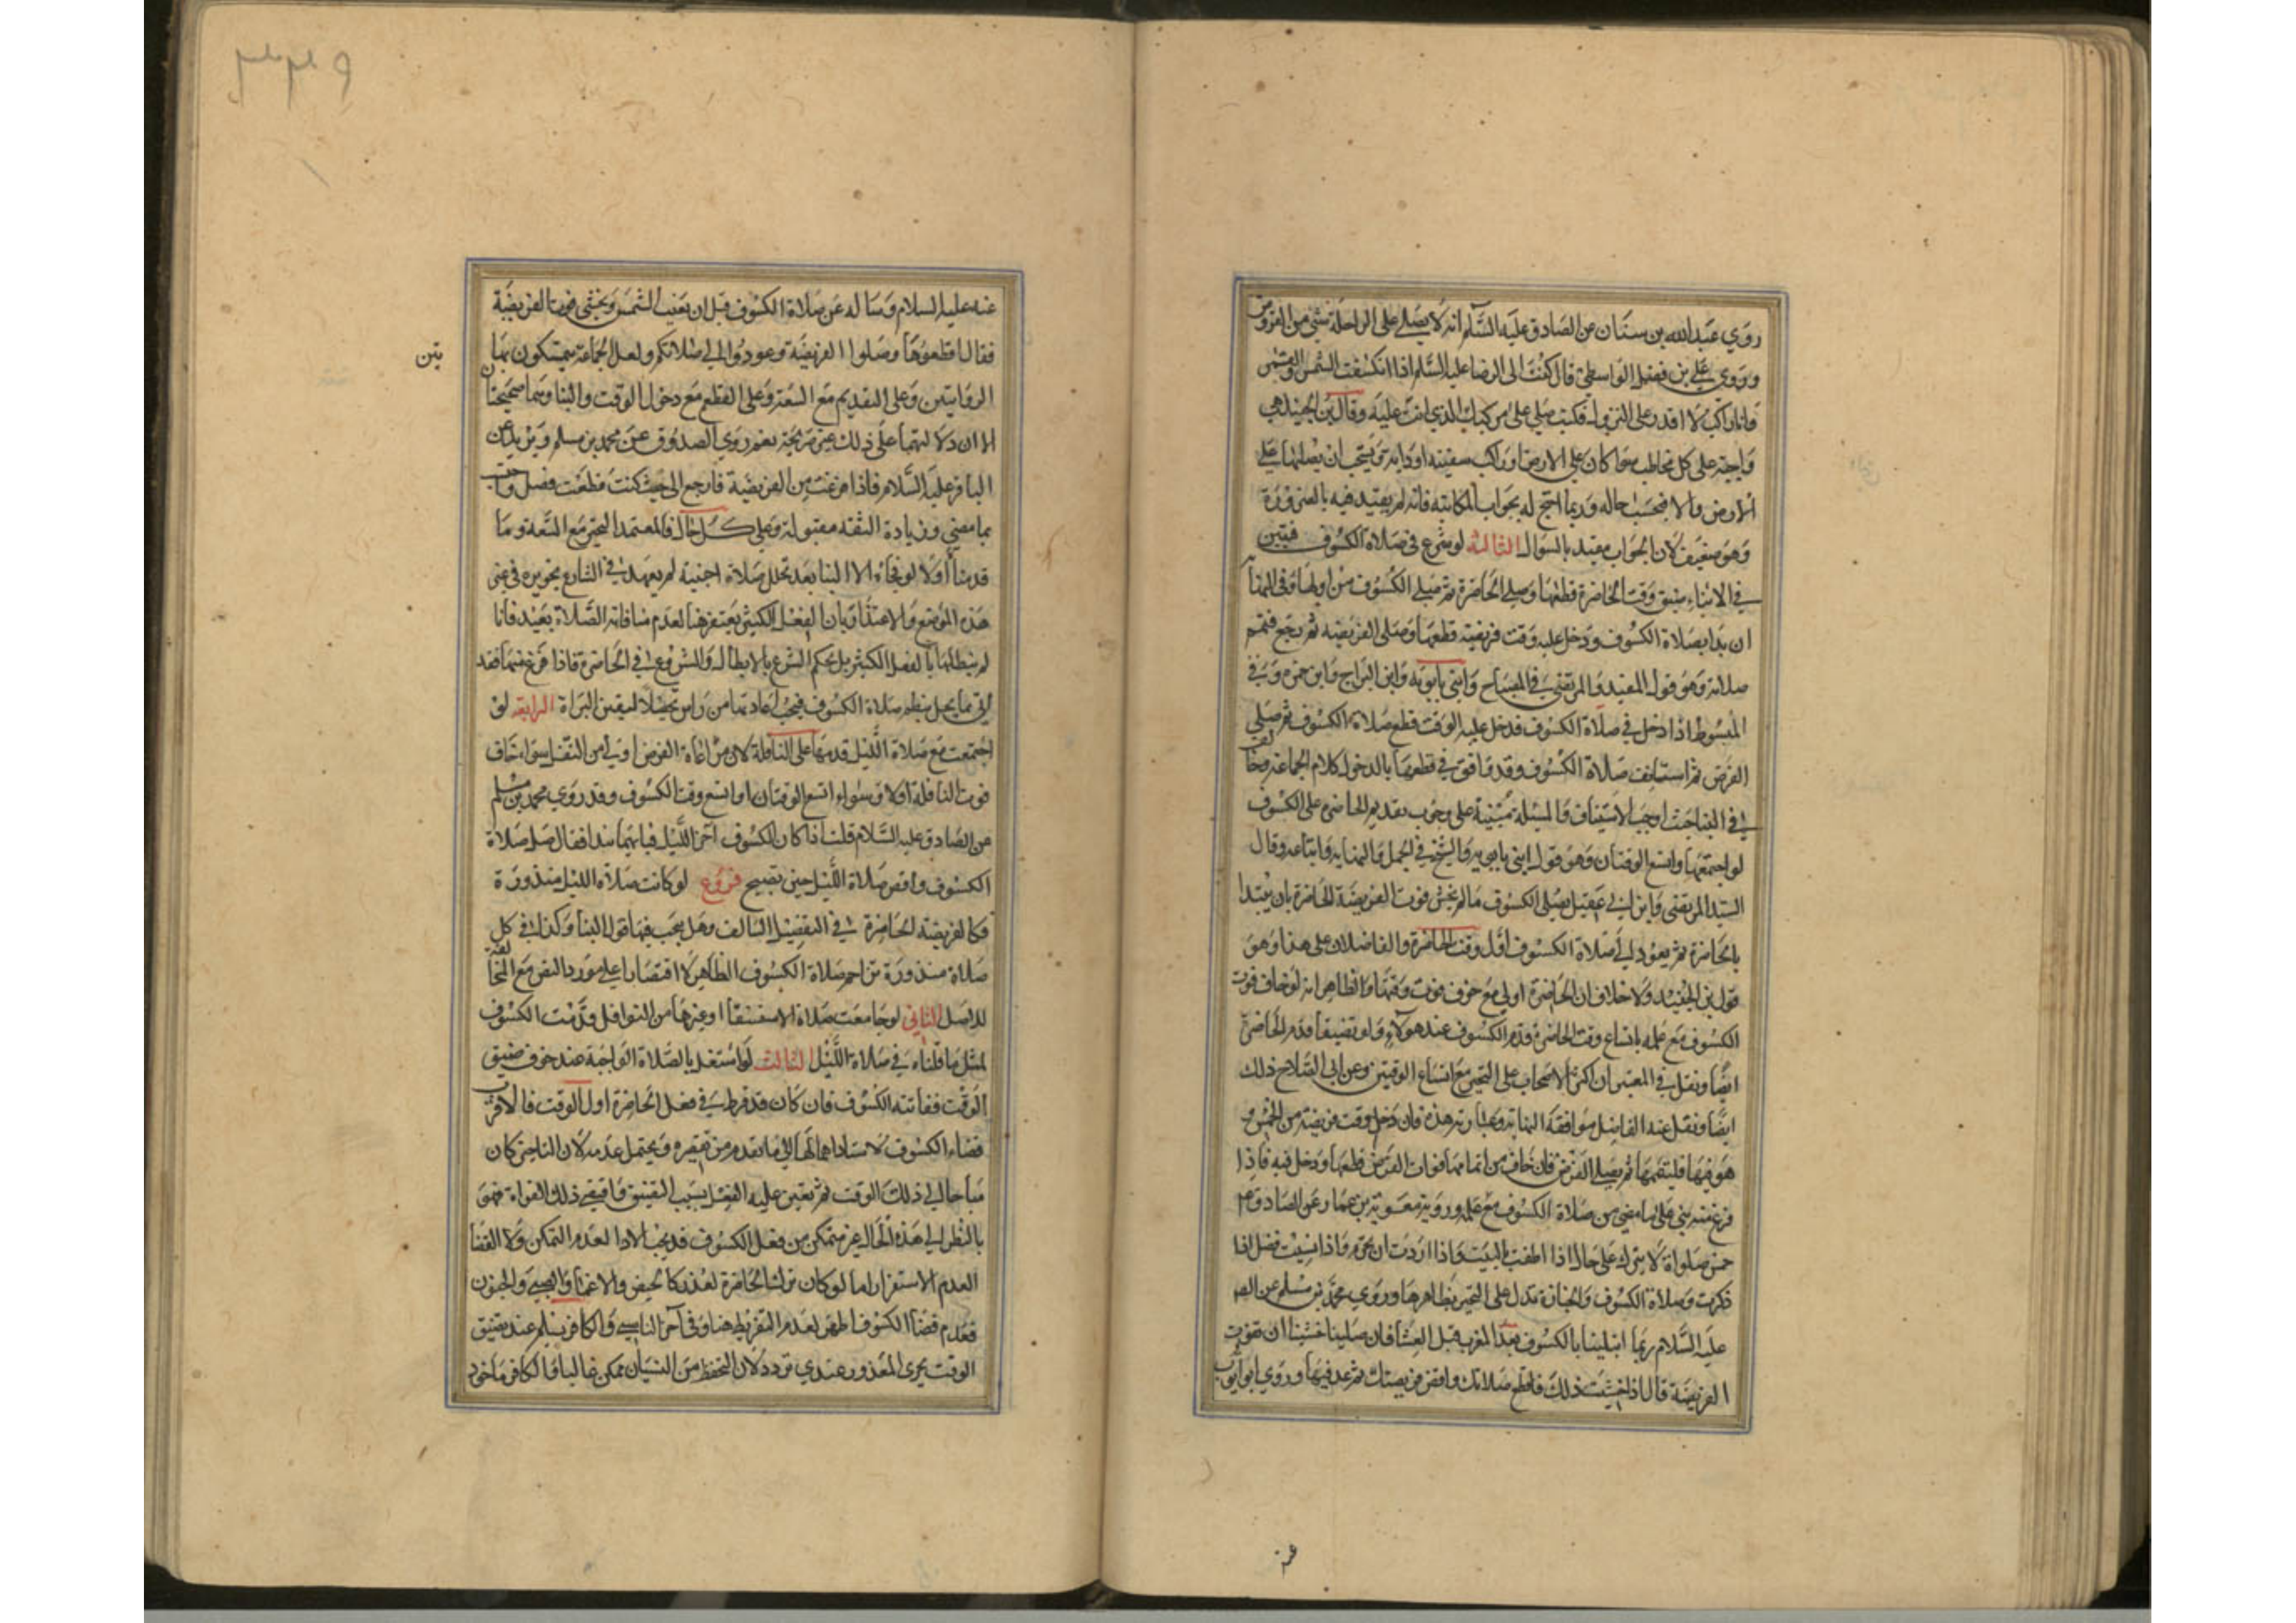 روي عبد الله بن سنان عن الصادق عليه السلم انه لا يصلى على الراحلة شئ من الفروض
وروي علي بن فضل الواسطي قال كتبت الى الرضا عليه السلم اذا انكسفت الشمس والقمر
وانا راكب لا اقدر على النزول فكتب صلي على مركبك الذي انت عليه وقال بن الجنيد هي
واجبة على كل مخاطب سوا كان على الارض او راكب سفينه او دابه ويستحب ان يصليها على
الارض والا فبحسب حاله وربما احتج له بجواب المكاتبه فانه لم يقيد فيه بالضرورة
وهو ضعيف لان الجواب مقيد بالسوال الثالثة لو شرع في صلاة الكسوف فتبين
في الاثناء ضيق وقت الحاضرة قطعها وصلى الحاضرة ثم صلى الكسوف من اولها وفي النهاية
ان بدا بصلاة الكسوف ودخل عليه وقت فريضة قطعها وصلى الفريضه ثم رجع فتمم
صلاته وهو قول المفيد والمرتضى في المصباح وابنى بابويه وابن البراج وابن حمزه وفي
المبسوط اذا دخل في صلاة الكسوف فدخل عليه الوقت قطع صلاة الكسوف ثم صلى
الفرض ثم استانف صلاة الكسوف وقد وافق في قطعها بالدخول كلام الجماعة وخالف
في البناء حيث اوجب الاستيناف والمسئلة مبنية على وجوب تقديم الحاضرة على الكسوف
لو اجتمعتا واتسع الوقتان وهو قول ابنى بابويه والشيخ في الجمل والنهايه واتباعه وقال
السيد المرتضى وابن ابي عقيل يصلى الكسوف ما لم يخش فوت الفريضة الحاضرة بان يبتدا
بالحاضرة ثم يعود الى صلاة الكسوف اول وقت الحاضرة والفاضلان على هذا وهو
قول بن الجنيد ولا خلاف ان الحاضرة اولى مع خوف فوت وقتها والظاهر انه لو خاف فوت
الكسوف مع علمه باتساع وقت الحاضرة قدم الكسوف عند هولاء ولو تضيقا قدم الحاضرة
ايضا ونقل في المعتبر ان اكثر الاصحاب على التخير مع اتساع الوقتين وعن ابي الصلاح ذلك
ايضا ونقل عنه الفاضل موافقة النهاية وعبارته هذه فان دخل وقت فريضة من الخمس و
هو فيها فليتمها ثم يصلى الفرض فان خاف من اتمامها فوات الفرض قطعها ودخل فيه فاذا
فرغ منه بنى على ما مضى من صلاة الكسوف مع علمه وروية معوية بن عمار عن الصادق ع
خمس صلواة لا يترك على حال اذا اطفت بالبيت واذا اردت ان تحرم واذا نسيت فصل اذا
ذكرت وصلاة الكسوف والجنازة تدل على التخير بظاهرها وروي محمد بن مسلم عن الصم
عليه السلام ربما ابتلينا بالكسوف بعد المغرب قبل العشا فان صلينا خشينا ان تفوت
الفريضة قال اذا خشيت ذلك فاقطع صلاتك واقض فريضتك ثم عد فيها وروي ابو ايوب
عنه عليه السلام وساله عن صلاة الكسوف قبل ان تغيب الشمس ويخشى فوت الفريضة
فقال اقطعوها وصلوا الفريضة وعودوا الى صلاتكم ولعل الجماعة يتمسكون بها
يتن
الروايتين وعلى التقديم مع السعة وعلى القطع مع دخول الوقت والبنا وهما صحيحتان
الا ان دلالتهما على ذلك غير صريحة نعم روي الصدوق عن محمد بن مسلم وبريد عن
الباقر عليه السلام فاذا فرغت من الفريضة فارجع الى حيث كنت قطعت فصل واحتسب
بما مضى وزيادة الثقه مقبولة وعلى كل حال فالمعتمد التخير مع السعة وما
قدمنا اولا
هذا الموضع والاعتذار بان الفعل الكثير يغتفر هنا لعدم منافاته الصلاة بعيد فانا
لم نبطلها بالفعل الكثير بل بحكم الشرع بالابطال والشروع في الحاضرة فاذا فرغ منها فقد
اتى بما يحل بنظم صلاة الكسوف فيجب اعادتها من راس تحصيلا ليقين البراة الرابعة لو
اجتمعت مع صلاة الليل قدمها على النافلة لان مراعاة الفرض اولى من النفل سواء خاف
فوت النافلة اولا وسواء اتسع الوقتان او اتسع وقت الكسوف وقد روي محمد بن مسلم
عن الصادق عليه السلام قلت اذا كان الكسوف اخر الليل فبايهما نبدا فقال صل صلاة
الكسوف واقض صلاة الليل حين تصبح فروع لو كانت صلاة الليل منذورة
فكالفريضة الحاضرة في التفصيل السالف وهل يجب فيها قول البنا وكذا في كل
صلاة منذورة تزاحم صلاة الكسوف الظاهر لا اقتصارا على مورد النص مع المخالفة
للاصل الثاني لو جامعت صلاة الاستسقا او غيرها من النوافل قدمت الكسوف
لمثل ما قلناه في صلاة الليل الثالث لو اشتغل بالصلاة الواجبة عند خوف ضيق
الوقت ففاتته الكسوف فان كان قد فرط في فعل الحاضرة اول الوقت فالاقرب
قضاء الكسوف لاستناد اهمالها الى ما تقدم من تقصيره ويحتمل عدمه لان التاخير كان
مباحا الى ذلك الوقت ثم يعين عليه الفعل بسبب التضيق واقتضى ذلك الفوات فهو
بالنظر الى هذه الحال غير متمكن من فعل الكسوف فلا يجب الادا لعدم التمكن ولا القضا
لعدم الاستقرار اما لو كان ترك الحاضرة لعذر كالحيض والاغما والصبي والجنون
فعدم قضا الكسوف اظهر لعدم التفريط هنا وفي اخر الناسي والكافر يسلم عند تضيق
الوقت يجرى المعذور عندي تردد لان التحفظ من النسيان ممكن غالبا والكافر ماخوذ